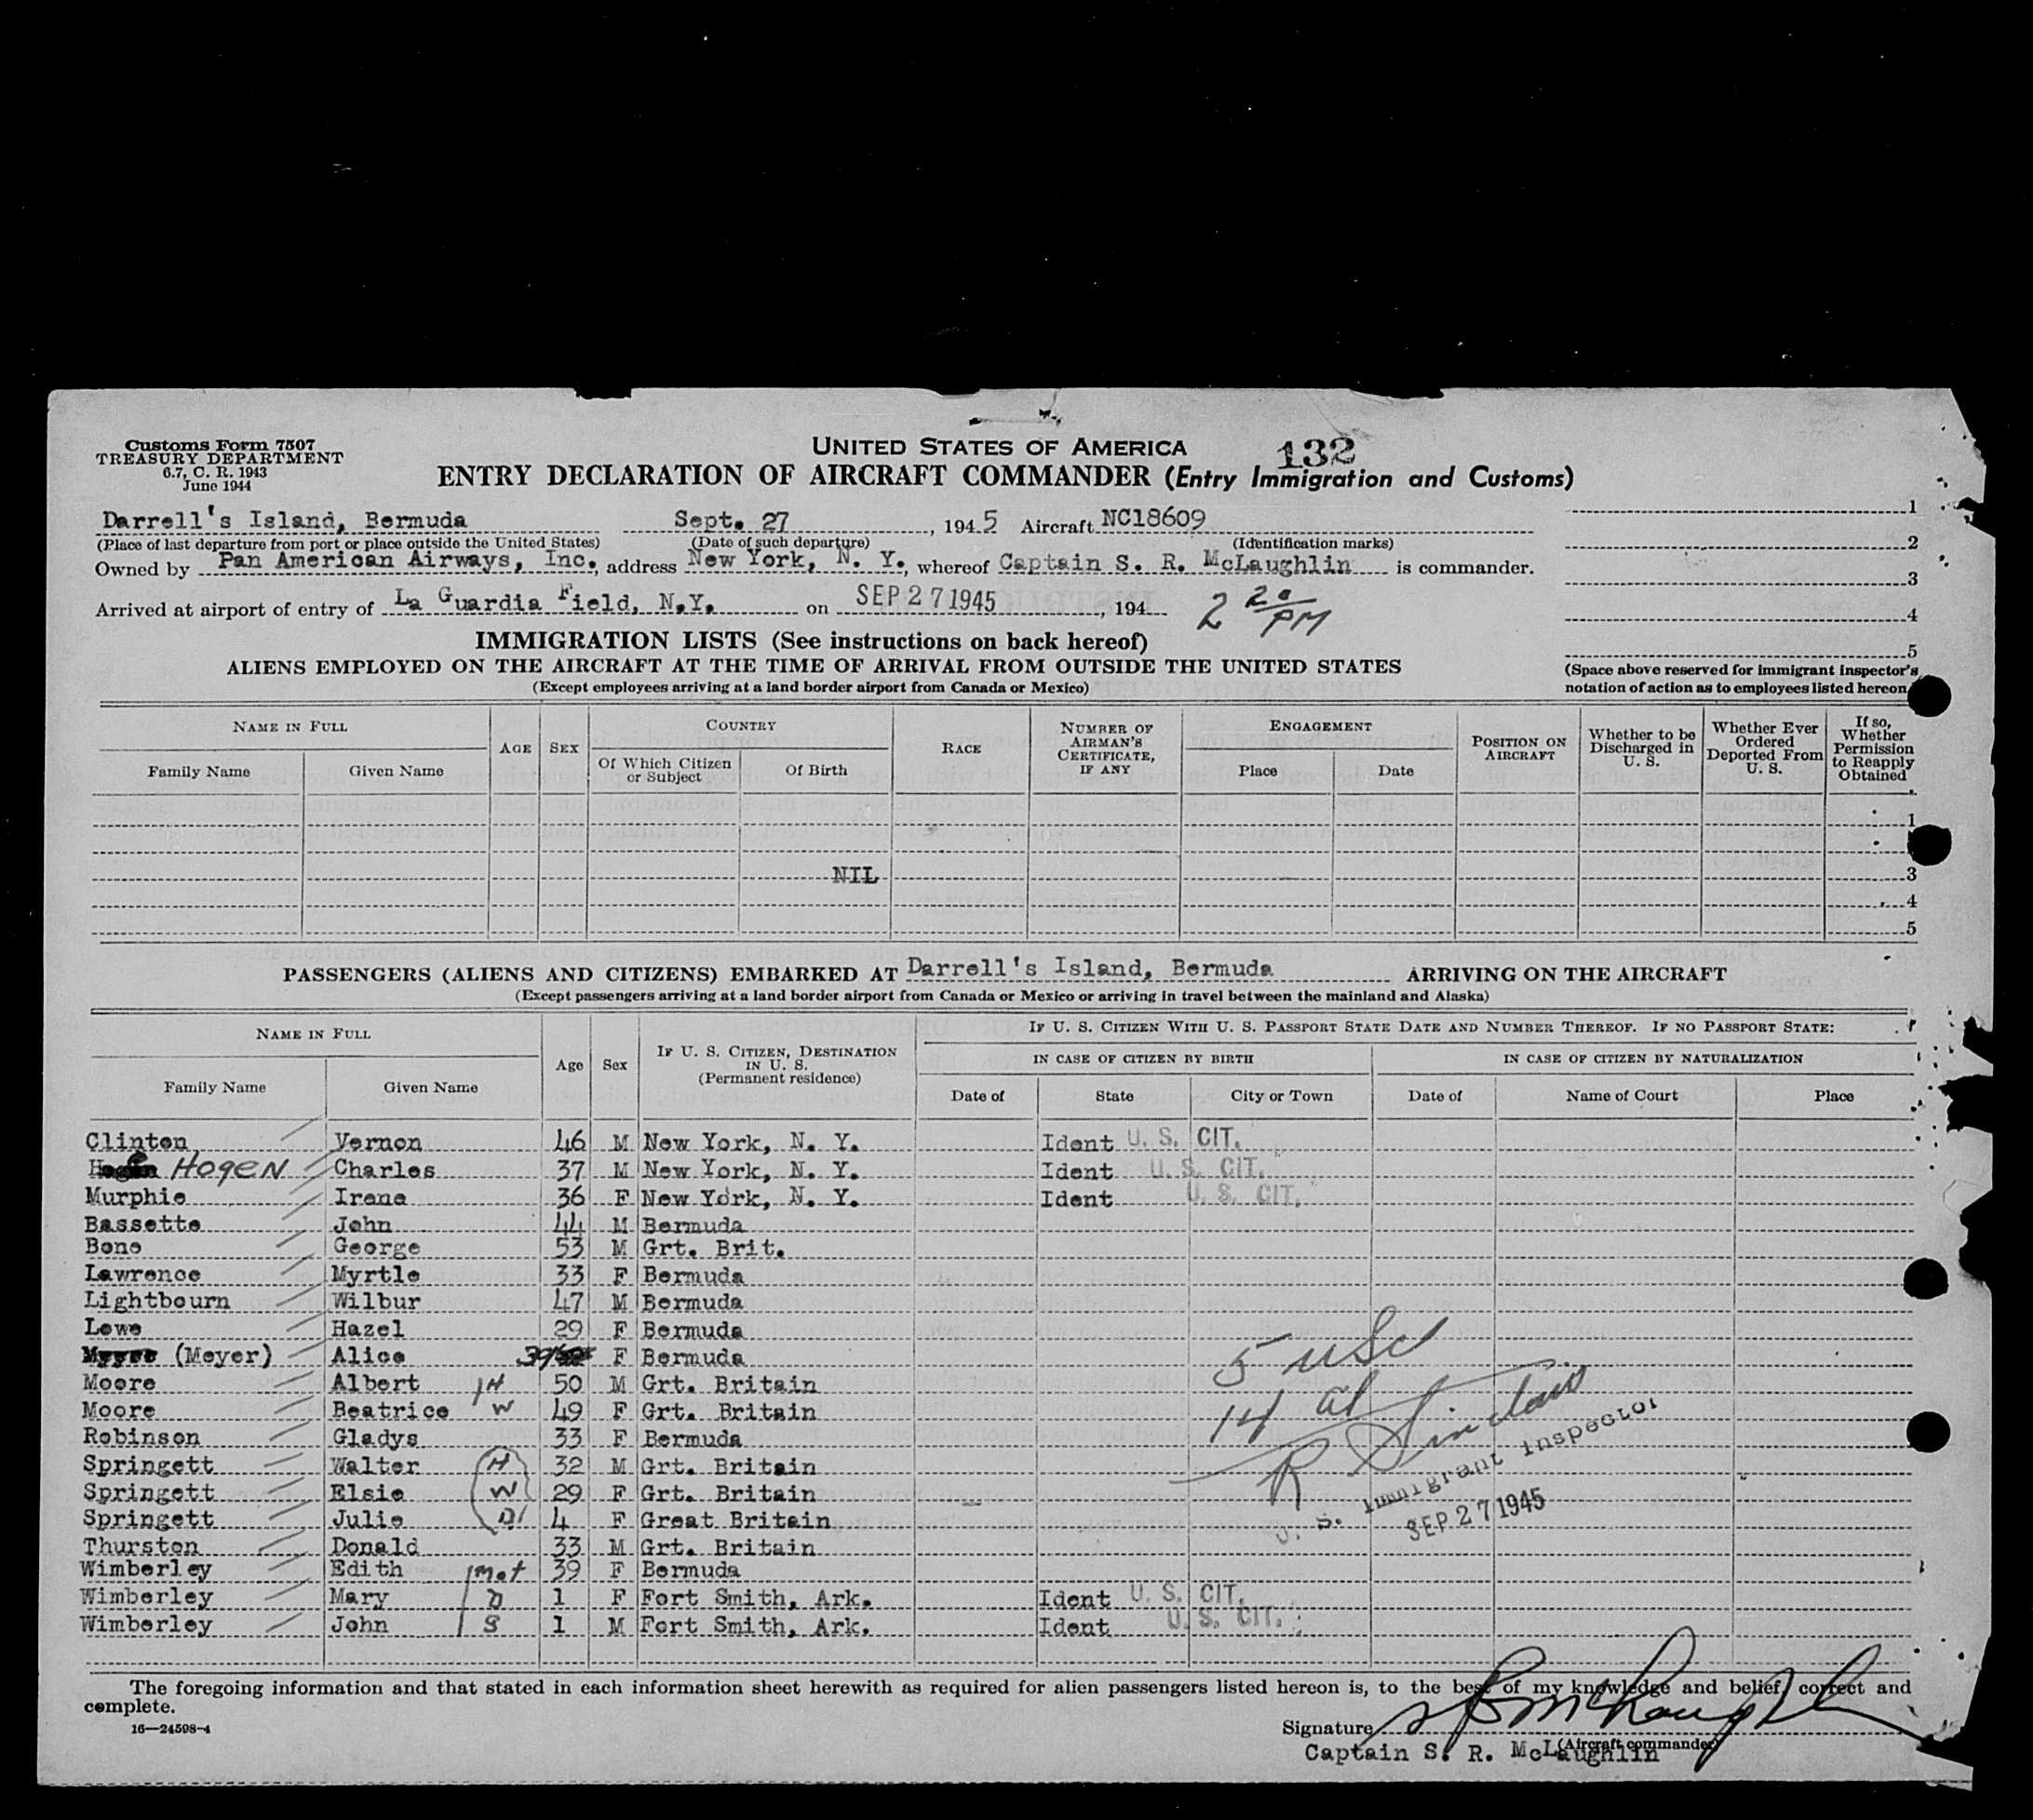 Customs Form 7507
TREASURY DEPARTMENT
6.7, C. R. 1943
June 1944
UNITED STATES OF AMERICA
132
ENTRY DECLARATION OF AIRCRAFT COMMANDER (Entry Immigration and Customs)
Darrell's Island, Bermuda Sept. 27, 1945 Aircraft NC18609
(Place of last departure from port or place outside the United States) (Date of such departure) (Identification marks)
Owned by Pan American Airways, Inc., address New York, N. Y., whereof Captain S. R. McLaughlin is commander.
Arrived at airport of entry of La Guardia Field, N.Y. on SEP 27 1945, 194 2 20 PM
1
2
3
4
5
(Space above reserved for immigrant inspector's
notation of action as to employees listed hereon
IMMIGRATION LISTS (See instructions on back hereof)
ALIENS EMPLOYED ON THE AIRCRAFT AT THE TIME OF ARRIVAL FROM OUTSIDE THE UNITED STATES
(Except employees arriving at a land border airport from Canada or Mexico)
NAME IN FULL
Family Name Given Name
AGE SEX
COUNTRY
Of Which Citizen or Subject Of Birth
RACE
NUMBER OF AIRMAN'S CERTIFICATE, IF ANY
ENGAGEMENT
Place Date
POSITION ON AIRCRAFT
Whether to be Discharged in U. S.
Whether Ever Ordered Deported From U. S.
If so, Whether Permission to Reapply Obtained
1
NIL 3
4
5
PASSENGERS (ALIENS AND CITIZENS) EMBARKED AT Darrell's Island, Bermuda ARRIVING ON THE AIRCRAFT
(Except passengers arriving at a land border airport from Canada or Mexico or arriving in travel between the mainland and Alaska)
NAME IN FULL
Family Name Given Name
Age Sex
IF U. S. CITIZEN, DESTINATION IN U. S.
(Permanent residence)
IF U. S. CITIZEN WITH U. S. PASSPORT STATE DATE AND NUMBER THEREOF. IF NO PASSPORT STATE:
IN CASE OF CITIZEN BY BIRTH IN CASE OF CITIZEN BY NATURALIZATION
Date of State City or Town Date of Name of Court Place
Clinton Vernon 46 M New York, N. Y. Ident U. S. CIT.
HOGEN Charles 37 M New York, N. Y. Ident U. S. CIT.
Murphie Irene 36 F New York, N. Y. Ident U. S. CIT.
Bassette John 44 M Bermuda
Bone George 53 M Grt. Brit.
Lawrence Myrtle 33 F Bermuda
Lightbourn Wilbur 47 M Bermuda
Lowe Hazel 29 F Bermuda
(Meyer) Alice 39 F Bermuda
Moore Albert H 50 M Grt. Britain
Moore Beatrice W 49 F Grt. Britain
Robinson Gladys 33 F Bermuda
Springett Walter H 32 M Grt. Britain
Springett Elsie W 29 F Grt. Britain
Springett Julie D 4 F Great Britain
Thurston Donald 33 M Grt. Britain
Wimberley Edith Mot 39 F Bermuda
Wimberley Mary D 1 F Fort Smith, Ark. Ident U. S. CIT.
Wimberley John S 1 M Fort Smith, Ark. Ident U. S. CIT.
5 USC
14 al
R Sinclair
U. S. Immigrant Inspector
SEP 27 1945
The foregoing information and that stated in each information sheet herewith as required for alien passengers listed hereon is, to the best of my knowledge and belief, correct and
complete.
16—24598-4
Signature S R McLaughlin
(Aircraft commander)
Captain S. R. McLaughlin